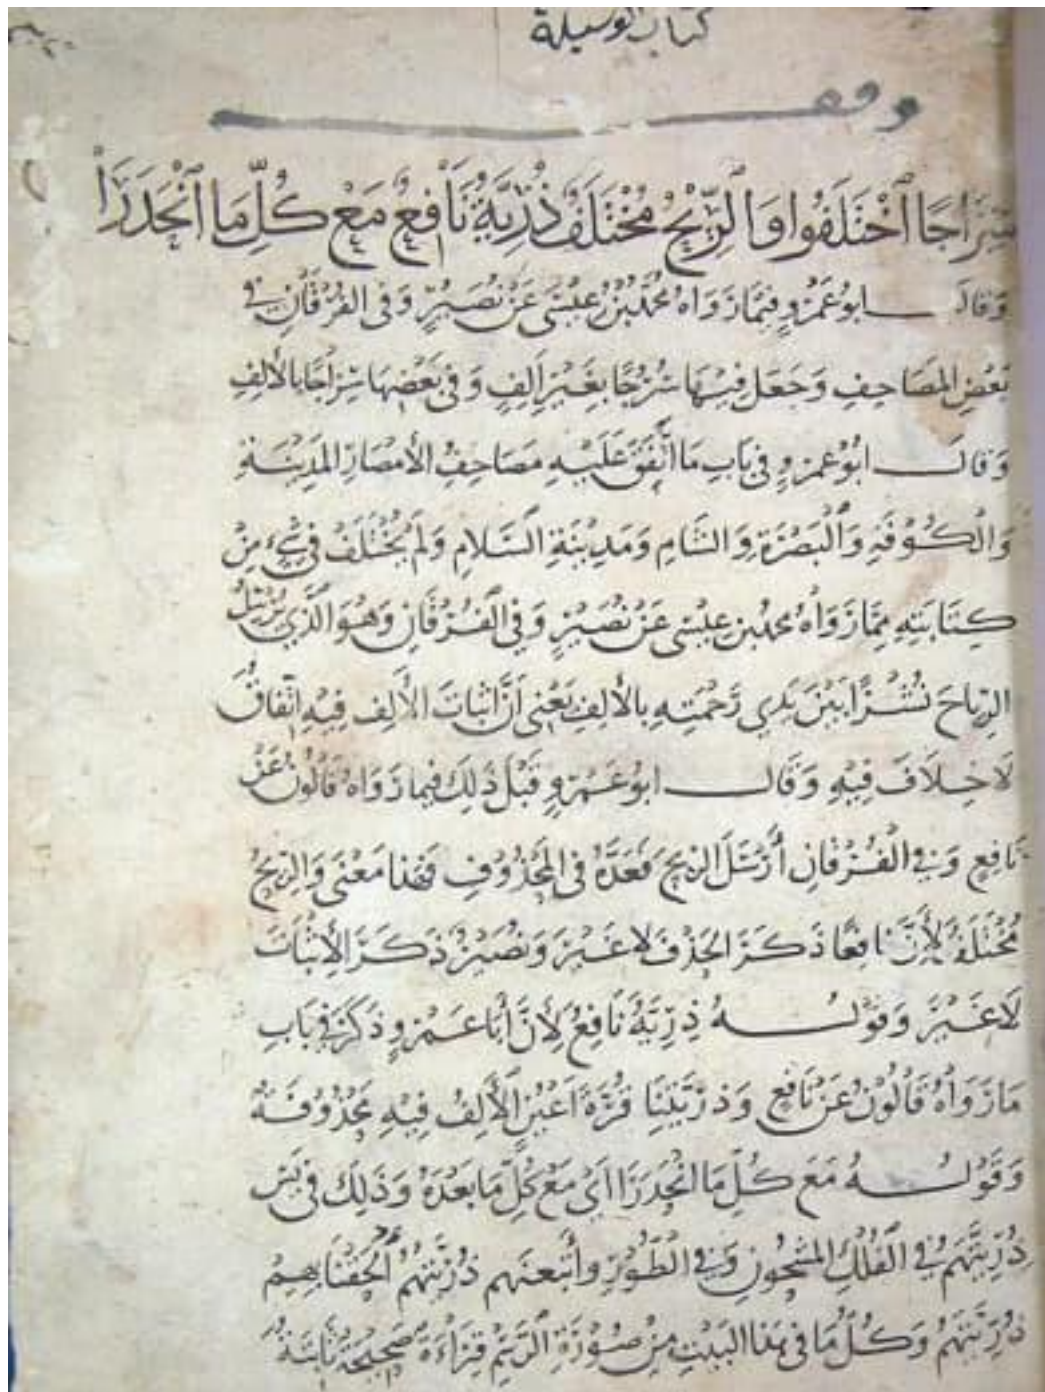 كتاب الوسيلة
وقف
سِرَاجًا اخْتَلَفُوا وَالرِّيْحُ مُخْتَلَفٌ ذُرِّيَّةٌ نَافِعٌ مَعْ كُلِّ مَا انْحَدَرَا
وَقَالَ ابُو عَمْرٍو فِيمَا رَوَاهُ مُحَمَّدُ بْنُ عِيْسَى عَنْ نُصَيْرٍ وَفِى الفُرْقَانِ فِى
بَعْضِ المَصَاحِفِ وَجَعَلَ فِيْهَا سُرُجًا بِغَيْرِ اَلِفٍ وَفِى بَعْضِهَا سِرَاجًا بِالأَلِفِ
وَقَالَ ابُو عَمْرٍو فِى بَابِ مَا اتَّفَقَ عَلَيْهِ مَصَاحِفُ الأَمْصَارِ المَدِيْنَةِ
وَالْكُوفَةِ وَالْبَصْرَةِ وَالشَامِ وَمَدِيْنَةِ السَّلَامِ وَلَمْ يُخْتَلَفْ فِى شَىْءٍ مِنْ
كِتَابَتِهِ مِمَّا رَوَاهُ محمد بن عِيْسى عَنْ نُصَيْرٍ وَفِى الْفُرْقَانِ وَهُوَ الَّذِي يُرْسِلُ
الرِّيَاحَ نُشُرًا بَيْنَ يَدَي رَحْمَتِهِ بِالأَلِفِ يَعْنِى أَنَّ اثْبَاتَ الأَلِفِ فِيْهِ اتِّفَاقٌ
لَا خِلَافَ فِيْهِ وَقَالَ ابُو عَمْرٍو قَبْلَ ذَلِكَ فِيمَا رَوَاهُ قَالُونُ عَنْ
نَافِعٍ وَفِى الْفُرْقَانِ أَرْسَلَ الرِّيحَ فَعَدَّهُ فِى المَحْذُوفِ فَهَذَا مَعْنَى وَالرِّيحُ
مُخْتَلَفٌ لِأَنَّ نَافِعًا ذَكَرَ الحَذْفَ لَا غَيْرَ وَنُصَيْرٌ ذَكَرَ الإثْبَاتَ
لَا غَيْرَ وَقَوْلُهُ ذُرِّيَّةٌ نَافِعٌ لِأَنَّ أَبَا عَمْرٍو ذَكَرَ فِى بَابِ
مَا رَوَاهُ قَالُوْنُ عَنْ نَافِعٍ وَذُرِّيَّتِنَا قُرَّةَ اَعْيُنٍ الأَلِفُ فِيْهِ مَحْذُوفَةٌ
وَقَوْلُهُ مَعَ كُلِّ مَا انْحَدَرَا اَيْ مَعْ كُلِّ مَا بَعْدَهُ وَذَلِكَ فِى يس
ذُرِّيَّتَهُمْ فِى الْفُلْكِ المَشْحُونِ وَفِى الْطُّوْرِ وَأَتْبَعْنَهم ذُرِّيَّتَهُمْ أَلْحَقْنَا بِهِمْ
ذُرِّيَّتَهُمْ وَكُلُّ مَا فِى هَذَا البَيْتِ مِنْ صُوْرَةِ الرَّسْمِ قِرَاءَةٌ صَحِيْحَةٌ ثَابِتَةٌ